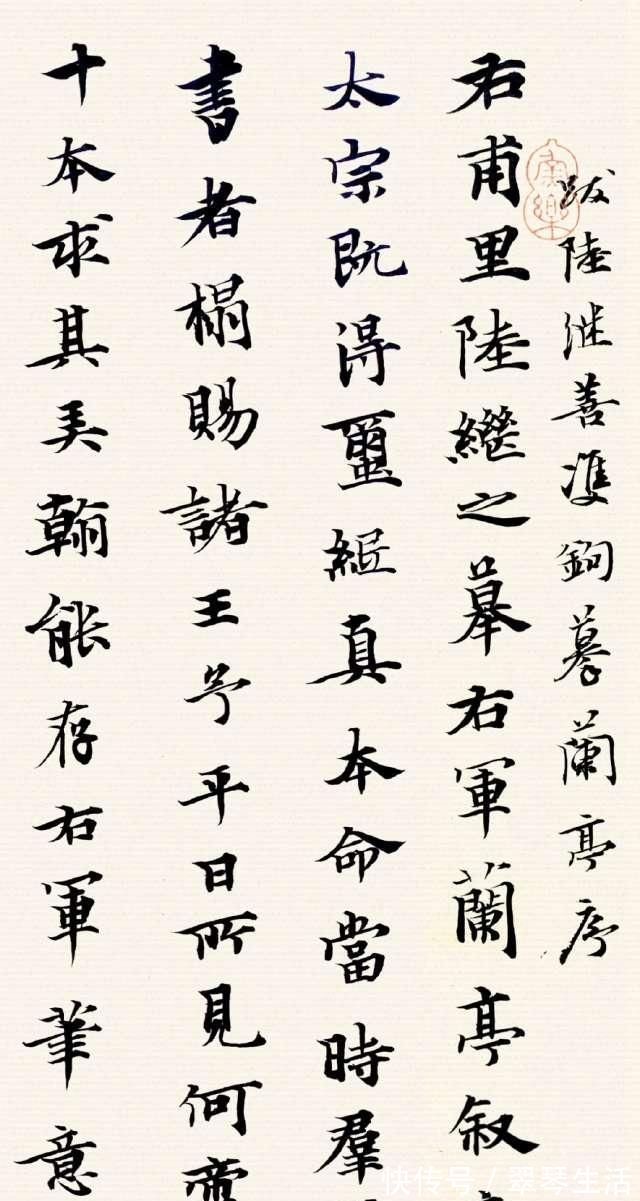 跋陸继善双鉤摹蘭亭序
右甫里陸繼之摹右軍蘭亭叙
太宗既得璽紙真本命當時羣
書者榻賜諸王予平日所見何啻
十本求其美翰能存右軍筆意
快传号/翠琴生活